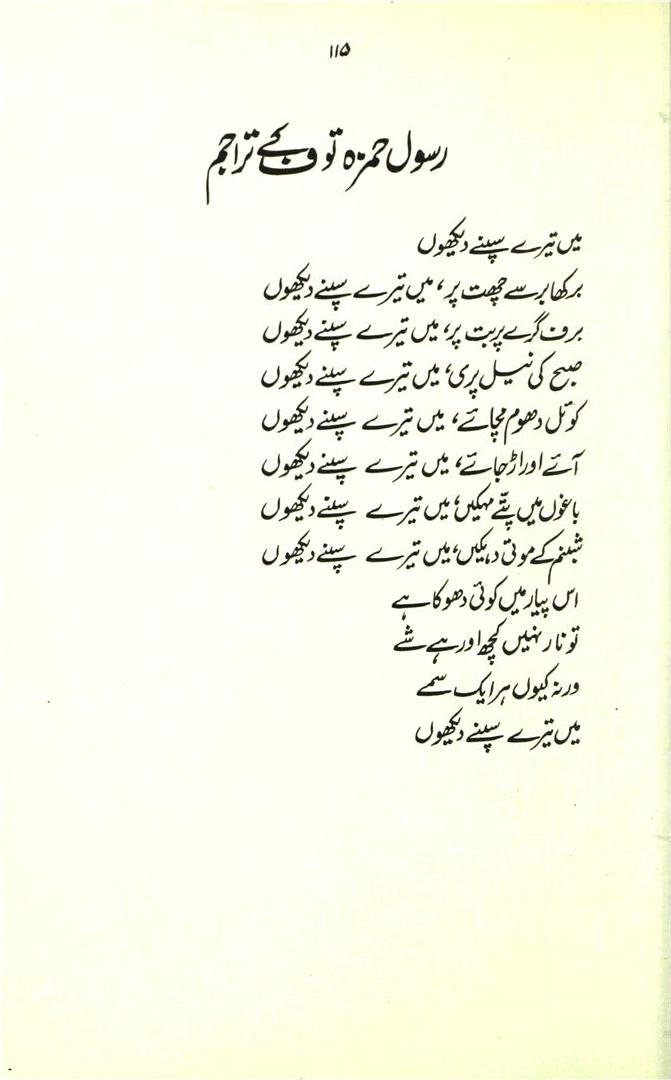 ۱۱۵
رسول حمزہ توف کے تراجم
میں تیرے سپنے دیکھوں
برکھا برسے چھت پر، میں تیرے سپنے دیکھوں
برف گرے پربت پر، میں تیرے سپنے دیکھوں
صبح کی نیل پری، میں تیرے سپنے دیکھوں
کوئل دھوم مچائے، میں تیرے سپنے دیکھوں
آئے اور اڑ جائے، میں تیرے سپنے دیکھوں
باغوں میں پتے مہکیں، میں تیرے سپنے دیکھوں
شبنم کے موتی دہکیں، میں تیرے سپنے دیکھوں
اس پیار میں کوئی دھوکا ہے
تو نار نہیں کچھ اور ہے شے
ورنہ کیوں ہر ایک سمے
میں تیرے سپنے دیکھوں